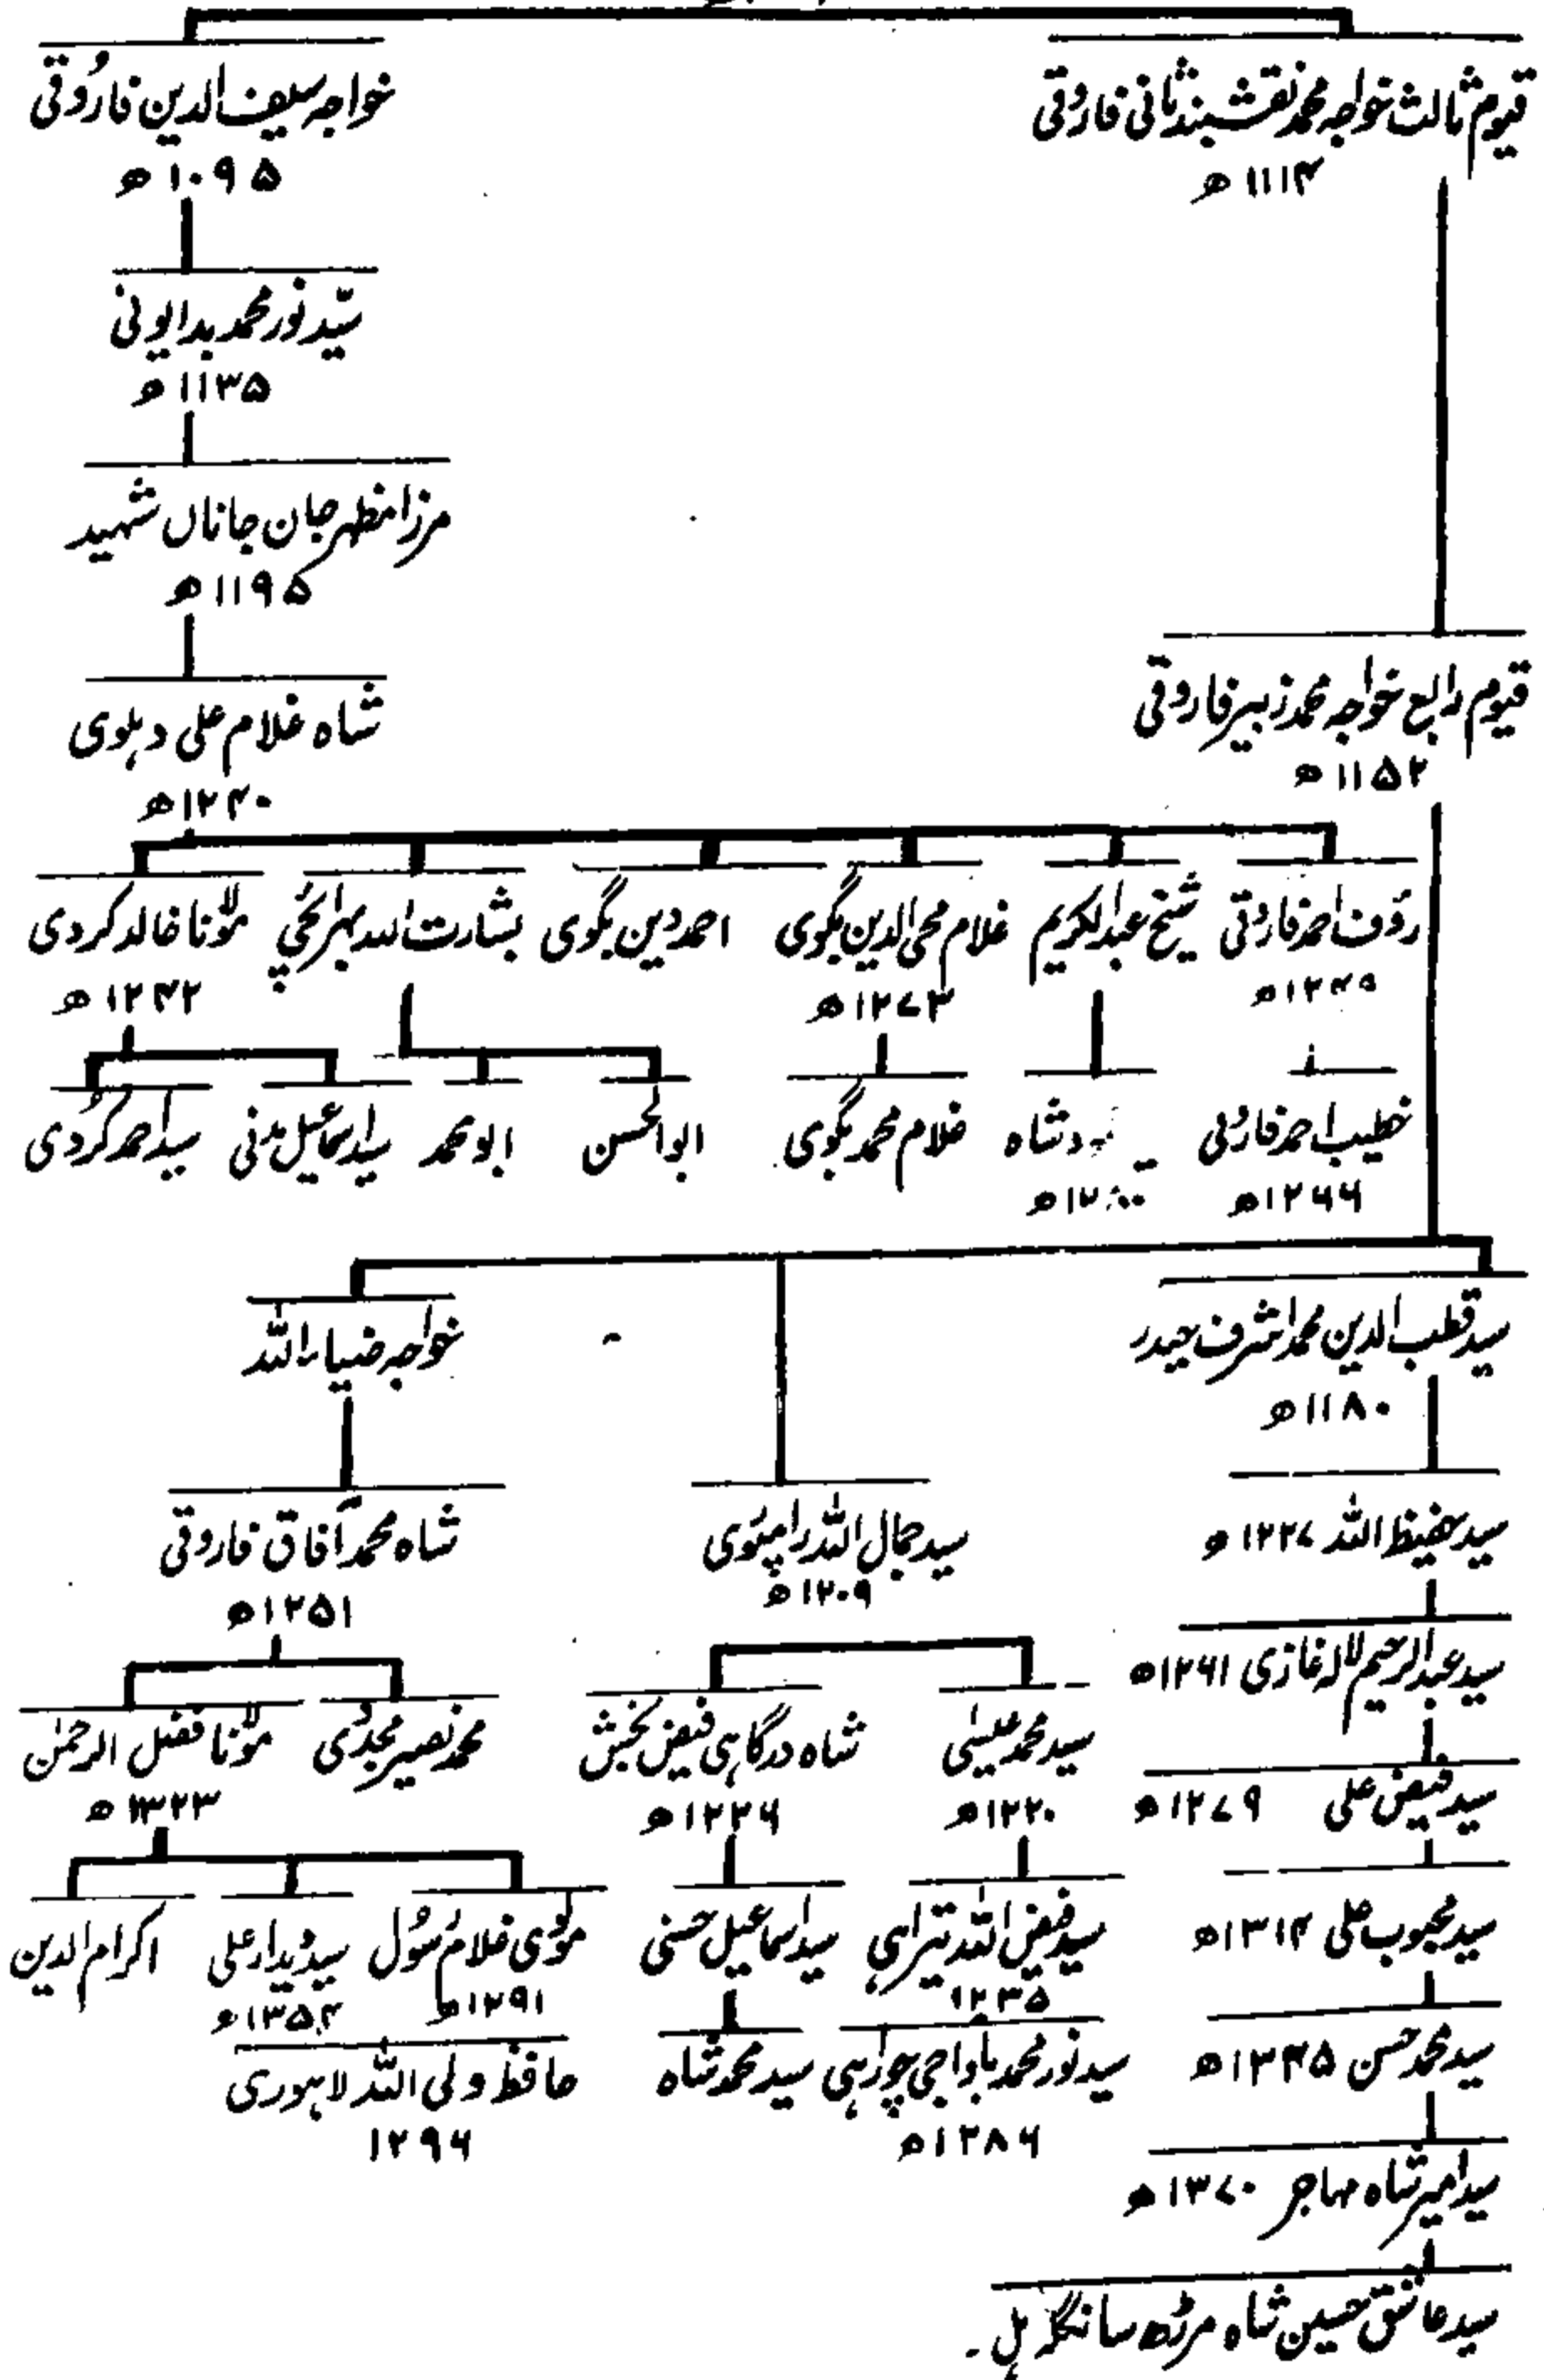 قیوم ثالث خواجہ محمد نقشبند ثانی فاروقی
۱۱۱۴ھ
خواجہ سیف الدین فارُوقی
۱۰۹۵ھ
سیّد نور محمد بدایونی
۱۱۳۵ھ
مرزا مظہر جان جاناں شہید
۱۱۹۵ھ
قیوم رابع خواجہ محمد زبیر فاروقی
۱۱۵۲ھ
شاہ غلام علی دہلوی
۱۲۴۰ھ
رؤف احمد فاروقی
۱۲۴۹ھ
شیخ عبدالکریم
غلام محی الدین بگوی
۱۲۷۳ھ
احمد دین بگوی
بشارت اللہ بہرائچی
مولانا خالد کردی
۱۲۴۲ھ
خطیب احمد فاروقی
۱۲۶۶ھ
شاہ
غلام محمد بگوی
ابوالحسن
ابو محمد
سید اسماعیل مدنی
سید احمد کُردی
سید قطب الدین محمد اشرف حیدر
۱۱۸۰ھ
خواجہ ضیاء اللہ
سید حفیظ اللہ ۱۲۲۷ھ
سید جمال اللہ رامپوری
۱۲۰۹ھ
شاہ محمد آفاق فاروقی
۱۲۵۱ھ
سید عبدالرحیم لالہ غازی ۱۲۶۱ھ
سید محمد عیسیٰ
۱۲۲۰ھ
شاہ درگاہی فیض بخش
۱۲۲۶ھ
محمد نصیر مجددی
مولانا فضل الرحمٰن
۱۳۲۳ھ
سید فیض علی ۱۲۷۹ھ
سید محبوب علی ۱۳۱۴ھ
سید فیض اللہ تیراہی
۱۲۳۵
سید اسماعیل حسنی
مولوی غلام رسول
۱۲۹۱ھ
سید دیدار علی
۱۳۵۴ھ
اکرام الدین
سید محمد حسن ۱۳۴۵ھ
سید نور محمد باواجی چوراہی
۱۲۸۶ھ
سید محمد شاہ
حافظ ولی اللہ لاہوری
۱۲۹۶
سید امیر شاہ مہاجر ۱۳۷۰ھ
سید عاشق حسین شاہ مرڑھ سانگلہ ہل۔